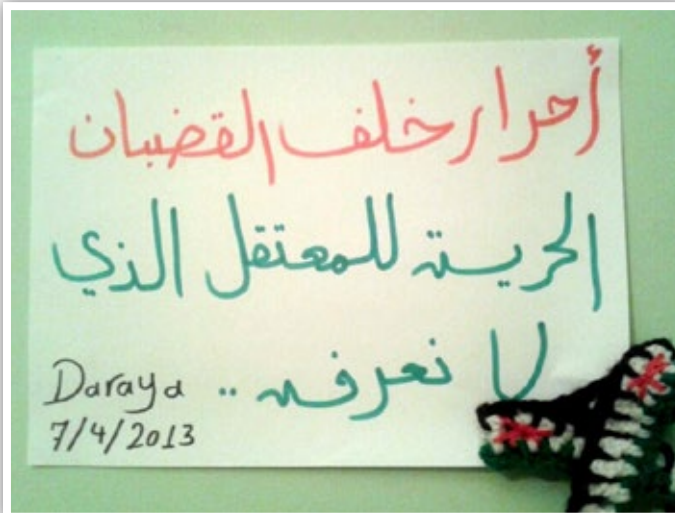 أحرار خلف القضبان
الحرية للمعتقل الذي
لا نعرفه ..
Daraya
7/4/2013